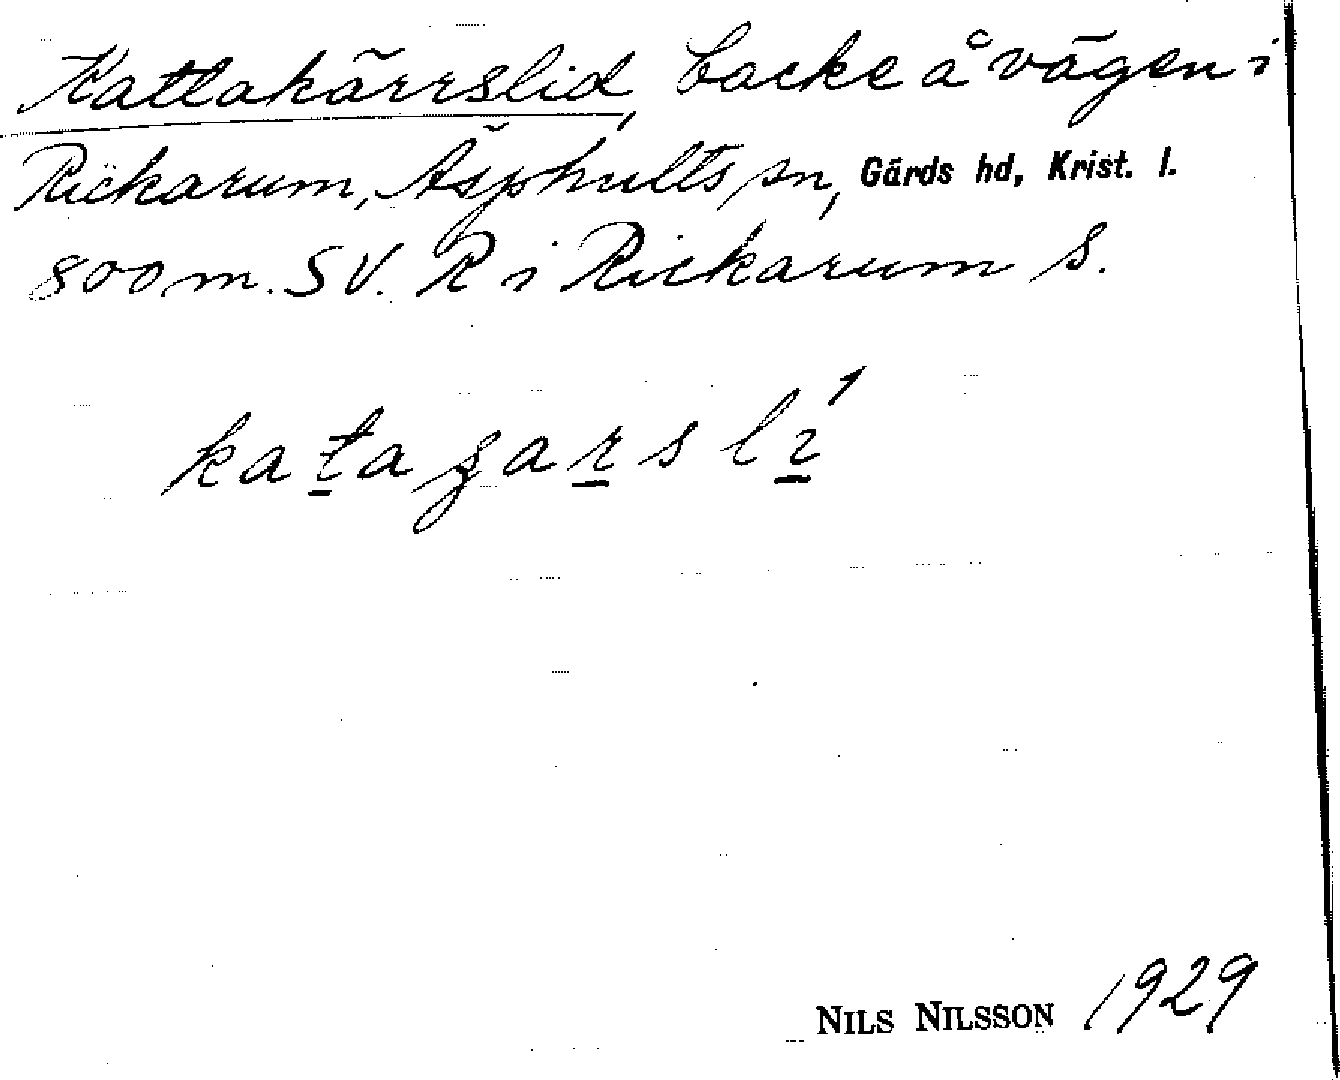 Kattakärrslid, backe å vägen i
Rickarum, Äsphults sn, Gärds hd, Krist. l.
800 m. SV. R i Rickarum s.
katagarslı́
NILS NILSSON 1929